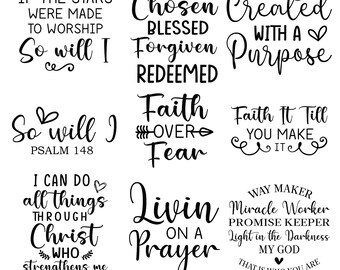 IF THE STARS
WERE MADE
TO WORSHIP
So will I
Chosen
BLESSED
Forgiven
REDEEMED
Created
WITH A
Purpose
So will I
PSALM 148
Faith
OVER
Fear
Faith It Till
YOU MAKE
IT
I CAN DO
all things
THROUGH
Christ
WHO
strengthens me
Livin
ON A
Prayer
WAY MAKER
Miracle Worker
PROMISE KEEPER
Light in the Darkness
MY GOD
THAT IS WHO YOU ARE